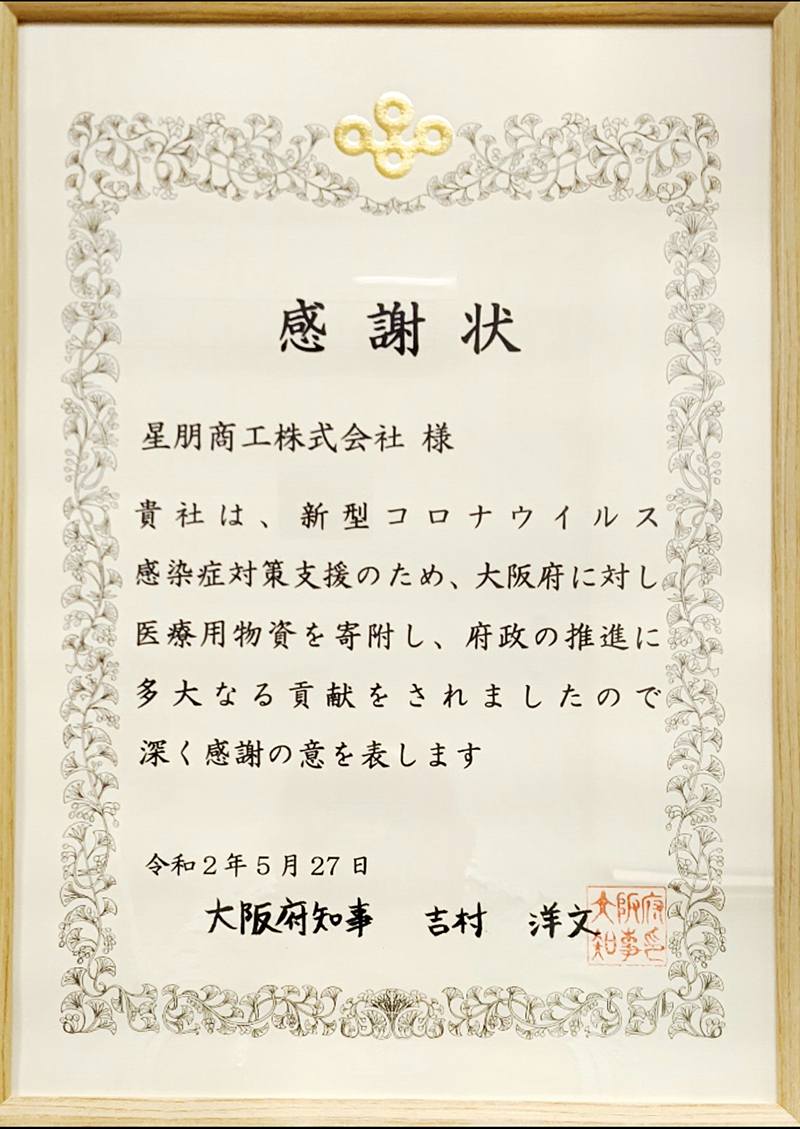 感謝状
星朋商工株式会社 様
貴社は、新型コロナウイルス
感染症対策支援のため、大阪府に対し
医療用物資を寄附し、府政の推進に
多大なる貢献をされましたので
深く感謝の意を表します
令和2年5月27日
大阪府知事 吉村 洋文
大阪府
知事印